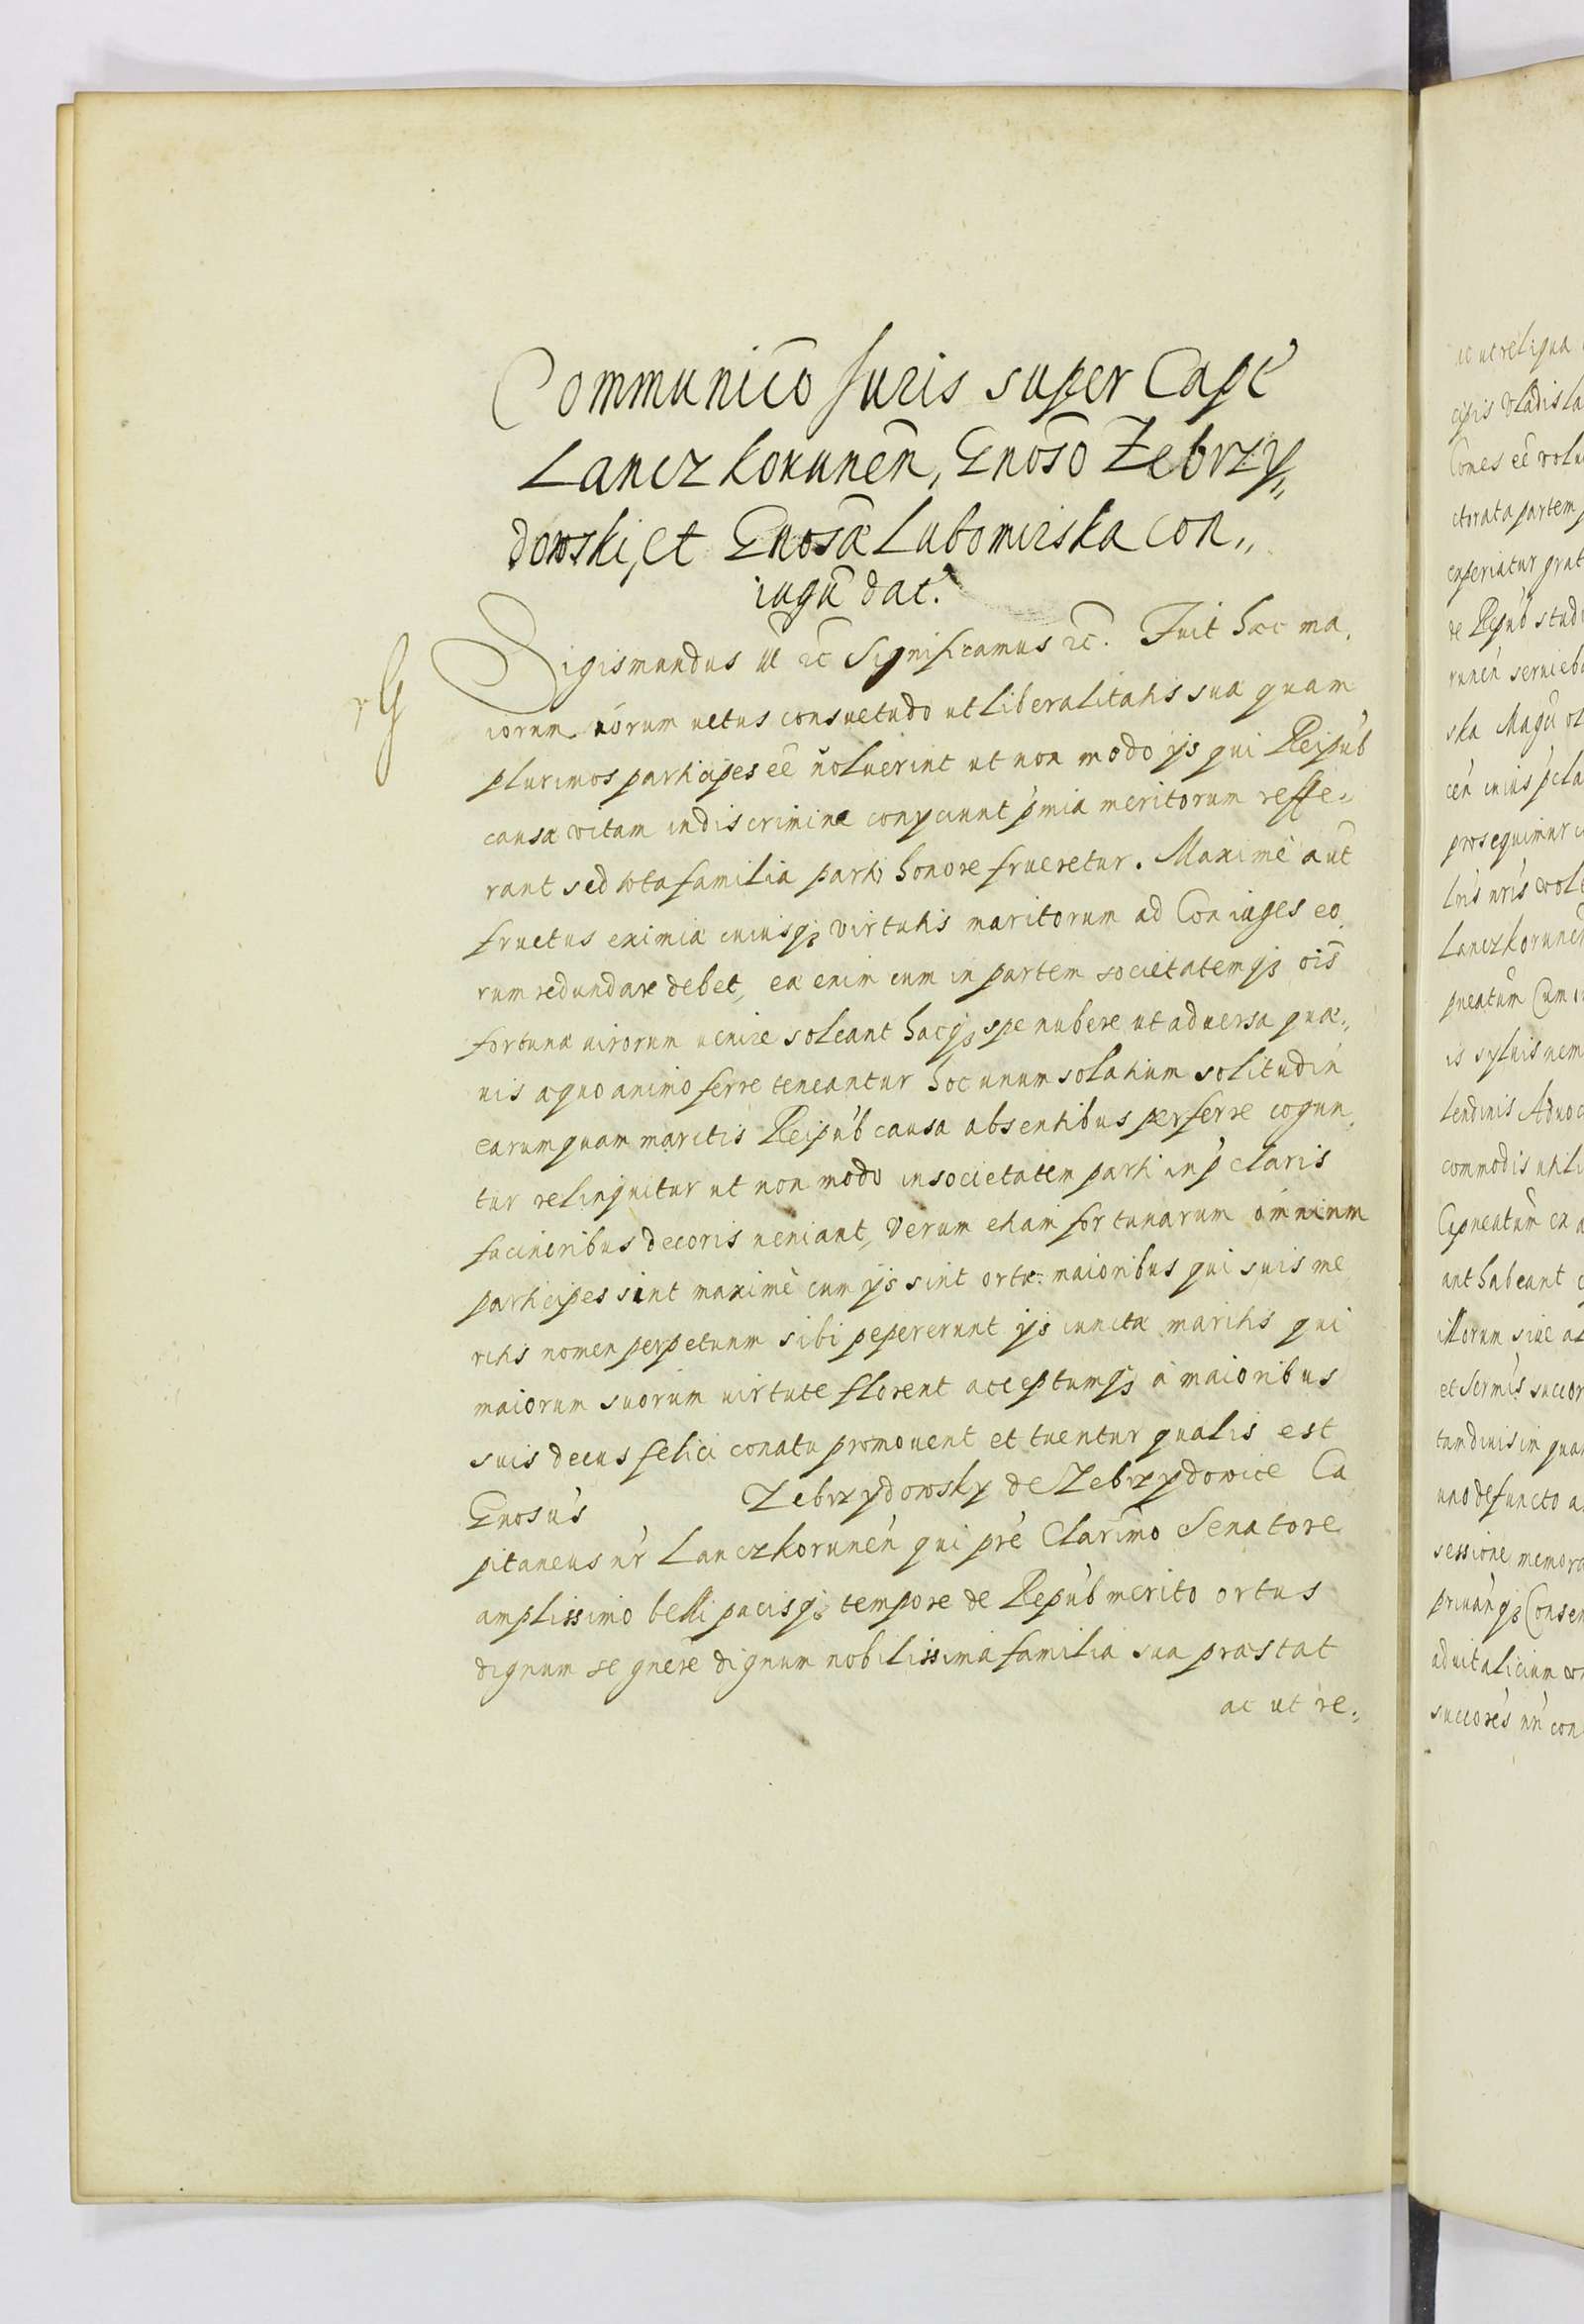 Communico Iuris super Capt
Lanczkorunen, Gnoso Zebrzy„
dowski, et Gnosæ Lubomirska con„
iugū dat.
rG
Sigismundus III etc Significamus etc. Fuit hæc ma,
iorum nôrum uetus consuetudo ut liberalitatis suæ quam
plurimos participes eē uoluerint ut non modo ijs qui Reipub
causa vitam in discrimine conyciunt p̓mia meritorum reffe„
rant sed tota familia parti honore frueretur. Maximè aut̄
fructus eximiæ cuiusq₃ virtutis maritorum ad Coniuges eo,
rum redundare debet, eæ enim cum in partem societatemq₃ oīs
fortunæ uirorum uenire soleant hacq₃ spe nubere ut aduersa quæ„
uis æquo animo ferre teneantur hoc unum solatium solitudin
earum quam maritis Reipub causa absentibus perferre cogun,
tur relinquitur ut non modo in societatem parti in p̓claris
facinoribus decoris ueniant, Verum etiam fortunarum omnium
participes sint maximè cum ijs sint ortæ maioribus qui suis me
ritis nomen perpetuum sibi pepererunt ijs iunctæ maritis qui
maiorum suorum uirtute florent acceptumq₃ à maioribus
suis decus felici conatu promouent et tuentur qualis est
Gnosus Zebrzydowsky de Zebrzydowice Ca
pitaneus nr̄ Lanczkorunen qui pr̄e Clarimo Senatore
amplissimo belli pacisq₃ tempore de Repub merito ortus
dignum se gnere dignum nobilissima familia sua præstat
ac ut re„
ac ut reliqua
cipis Vladisla
Comes eē volu
ctorata partem
experiatur grat
de Repub studi
runen seruieb
ska Magū ol
cen cuius p̓cla
prosequimur
lris nris vole
Lanczkorunen
pneatum Cum
is syluis nem
lendinis Aduoc
commodis utili
Capneatum ex a
ant habeant
illorum siue al
et Sermis succor
tam diuisim quam
uno defuncto a
sessione memora
priuanq₃ Consen
aduitalicium
succores nri con